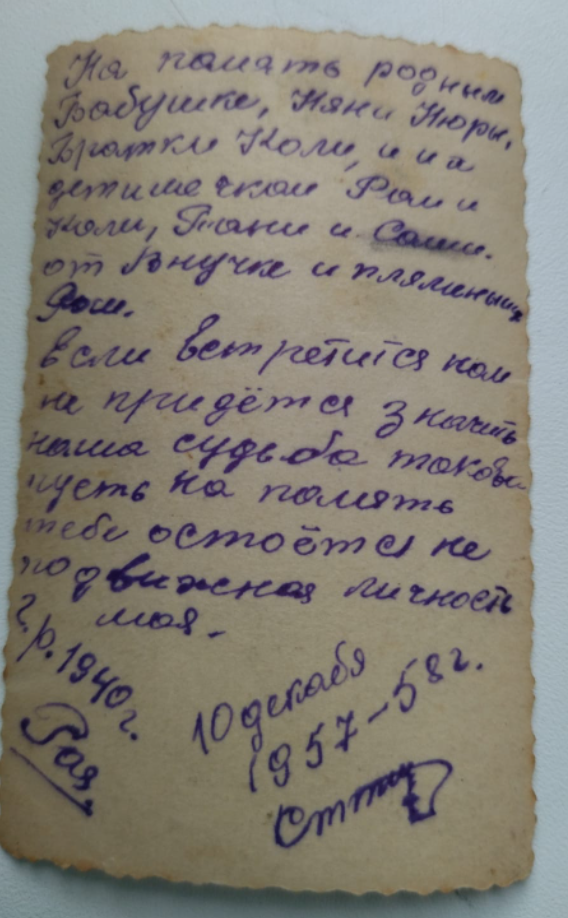 На память родным
Бабушке, Няни Нюры,
Братки Коли, и их
детишечкам Раи и
Коли, Тани и Саши.
от Внучке и плямяницы
Раи.
Если встретится нам
не придётся значить
наша судьба такова
пусть на память
тебе остоётся не
подвижная личность
моя.
г.р. 1940 г.
Рая.
10 декабя
1957-58 г.